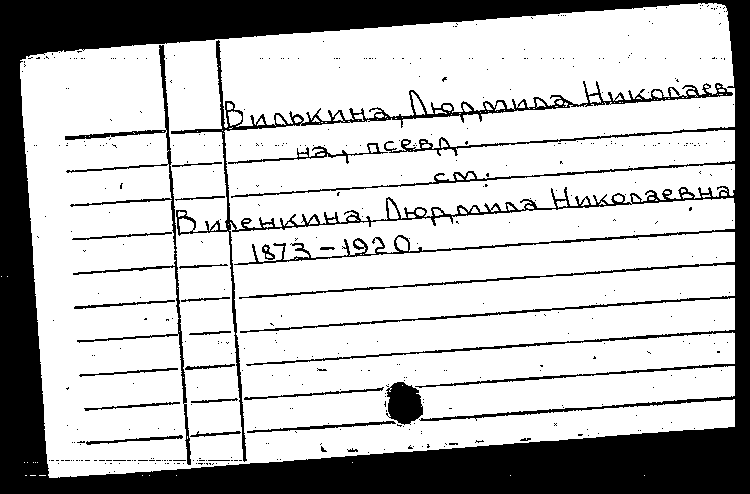 Вилькина, Людмила Николаев-
на, псевд.
см.
Виленкина, Людмила Николаевна
1873-1920.